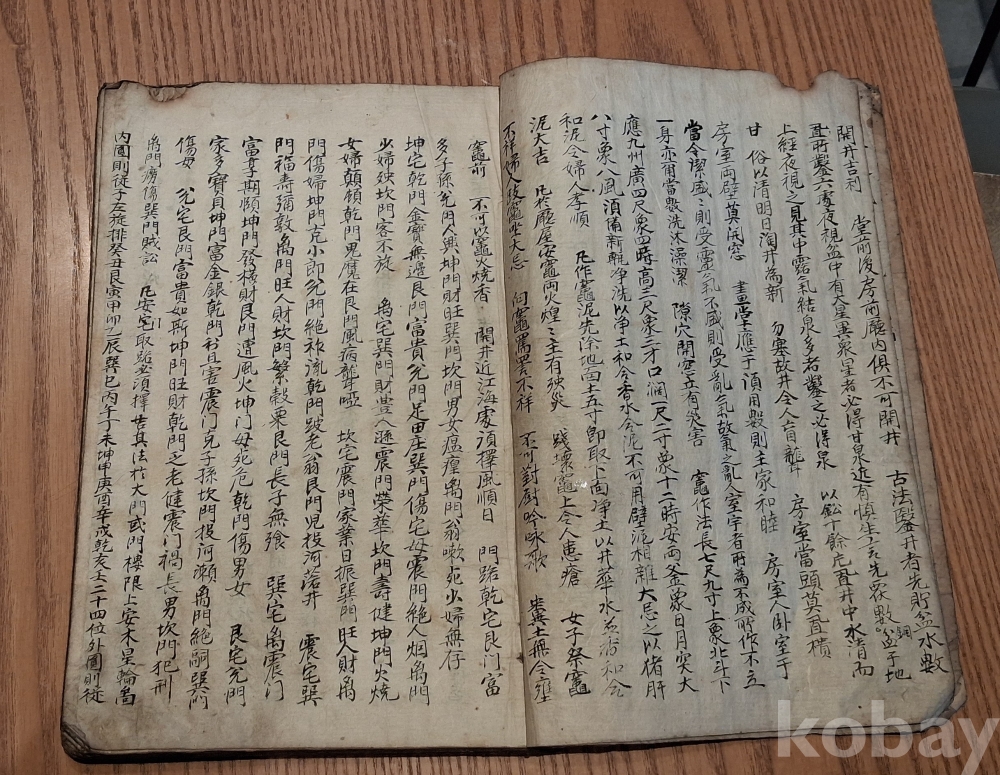 開井吉利 堂前後房前廳內俱不可開井 古法鑿井者先貯盆水數
置所鑿六處夜視盆中有大星異衆星者必得甘泉近有慎生言先衆數銅盆于地
上經夜視之見其中露氣結泉多者鑿之必得泉 以鉛十餘斤置井中水清而
甘 俗以清明日淘井為新 勿塞故井令人盲聾 房室當頭莫置橫
房室兩壁莫開窓 晝寫主應于須用數則主家和睦 房室人臥室于
當令潔盛盛則受靈氣不盛則受亂氣故氣之亂室宇者所為不成所作不立
一身亦爾當數洗沐澡潔 隙穴開窓立有災害 竈作法長七尺九寸上象北斗下
應九州廣四尺象四時高三尺象三才口濶一尺二寸象十二時安兩釜象日月突大
八寸象八風須備新甎淨洗以淨土和合香水合泥不可用壁泥相雜大忌之以猪肝
和泥令婦人孝順 凡作竈泥先除地面土五寸即取下面淨土以井華水並香和合
泥大吉 凡於廳屋安竈兩火煌煌主有殃災 踐壞竈土令人患瘡 女子祭竈
不祥婦人跂竈坐大忌 向竈罵詈不祥 不可對廚吟咏歌 糞土無令壅
竈前 不可以竈火燒香 開井近江海處須擇風順日 門路乾宅艮门富
多子孫兌門人興坤門財旺巽門坎門男女瘟瘟离門翁嗽死少婦無存
坤宅乾門金寶無邊艮門富貴兌門足田庄巽門傷宅母震門絕人烟离門
少婦殃坎門客不旋 离宅巽門財豊八滙震門榮華坎門壽健坤門火燒
女婦顛頷乾門鬼魔在艮門風病聾啞 坎宅震門家業日振巽門旺人財离
門福壽彌敦离門旺人財坎門繁穀粟艮門長子無飧 巽宅离震門
門傷婦坤門克小郎兌門絕祚流乾門跛老翁艮門児投河落井 震宅巽
富享期頤坤門發橫財艮門遭風火坤门母死危乾門傷男女 艮宅兌門
家多寶貝坤門富金銀乾門利且害震門克子孫坎門投河瀨离門絕嗣巽門
傷母 兌宅艮門富貴如斯坤門旺財乾門乏老健震門禍長男坎門犯刑
离門癆傷巽門賊訟 凡安宅取路必須擇吉其法於大門或門樓限上安木星輪啚
內圓則從子左旋排癸丑艮寅甲卯乙辰巽巳丙午丁未坤申庚酉辛戌乾亥壬二十四位外圓則從
kobay